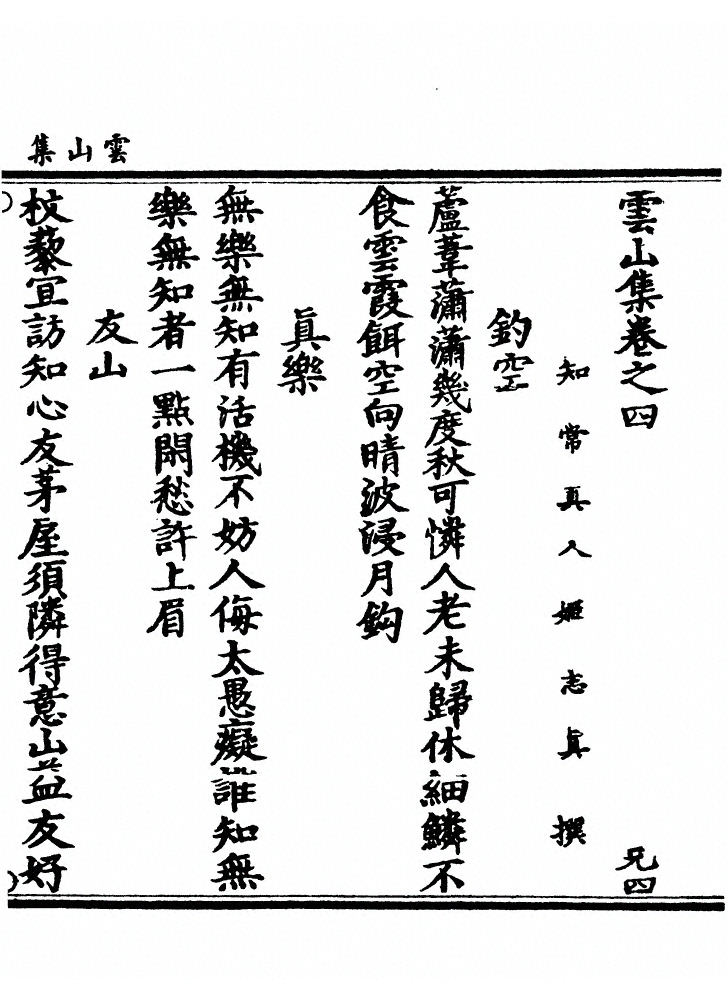 雲山集
雲山集卷之四
兄四
知常真人姬志真撰
釣空
蘆葦瀟瀟幾度秋可憐人老未歸休細鱗不
食雲霞餌空向晴波浸月鈎
真樂
無樂無知有活機不妨人侮太愚癡誰知無
樂無知者一點閑愁許上眉
友山
杖藜宜訪知心友茅屋須隣得意山益友好